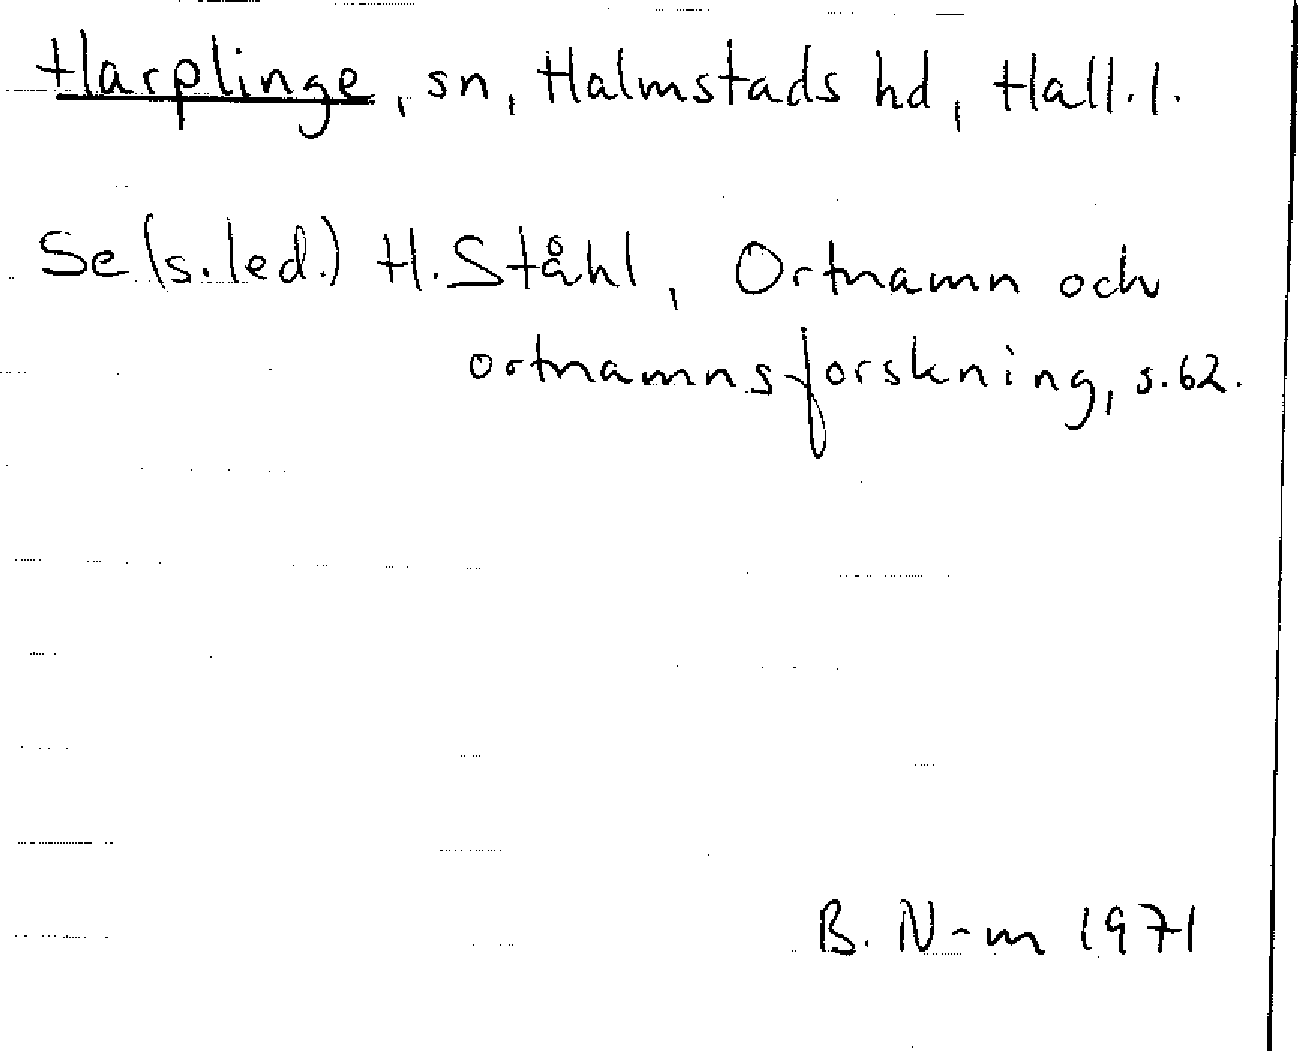 Harplinge, sn, Halmstads hd, Hall. l.
Se (s. led.) H. Ståhl, Ortnamn och
ortnamnsforskning, s. 62.
B. N-m 1971